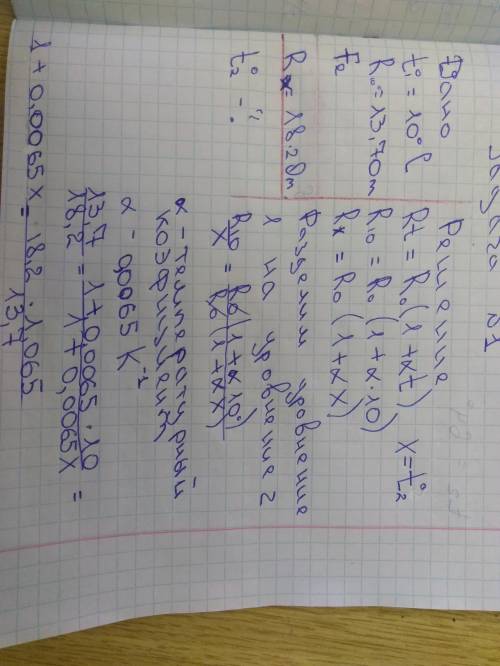 Задача №1
Дано
t₁° = 10°C
R₀ = 13,70 Om
Fe
Rx = 18.20 Om
t₂° - ?
Решение
Rt = R₀(1+αt) x = t₂°
R₁₀ = R₀(1+α·10)
Rx = R₀(1+αx)
Разделим уровнение
1 на уровнение 2
R₁₀/X = R₀(1+α10°)/R₀(1+αx)
α - температурный
коэфициент
α - 0,0065 K⁻¹
13,7/18,2 = 1+0,0065·10/1+0,0065x =
1+0,0065x = 18,2·1,065/13,7